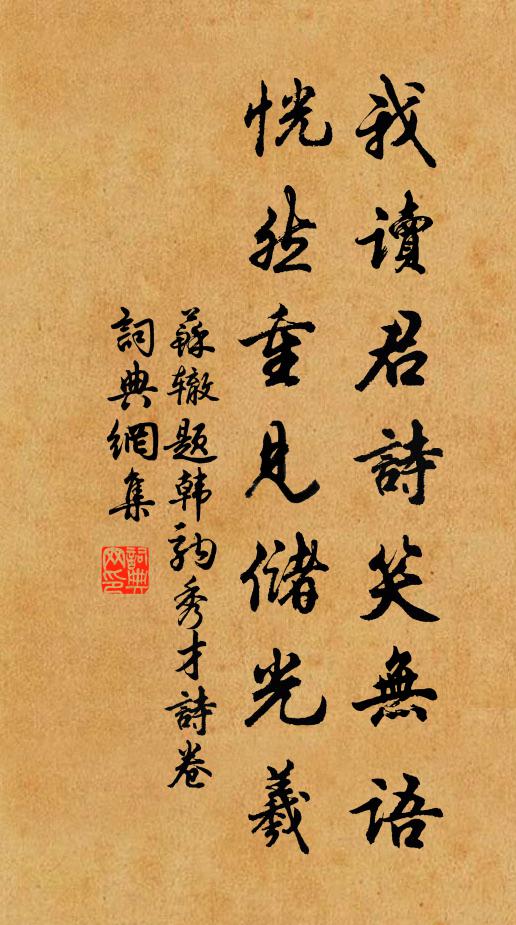 我讀君詩笑無語
恍然重見儲光羲
蘇辙题韩駒秀才詩卷
詞典網集
詞典
网印